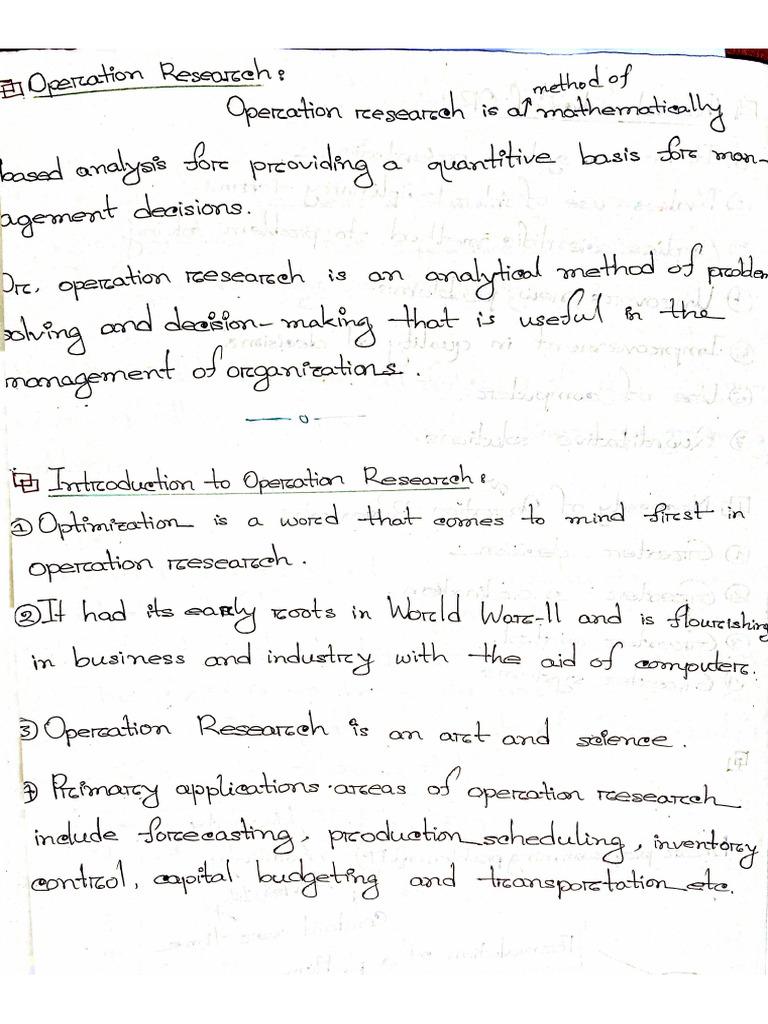 Operation Research:
Operation research is a method of mathematically
based analysis for providing a quantitive basis for man-
agement decisions.
Or, operation research is an analytical method of problem
solving and decision-making that is useful in the
management of organizations.
Introduction to Operation Research:
① Optimization is a word that comes to mind first in
operation research.
② It had its early roots in World War-II and is flourishing
in business and industry with the aid of computer.
③ Operation Research is an art and science.
④ Primary applications areas of operation research
include forecasting, production scheduling, inventory
control, capital budgeting and transportation etc.